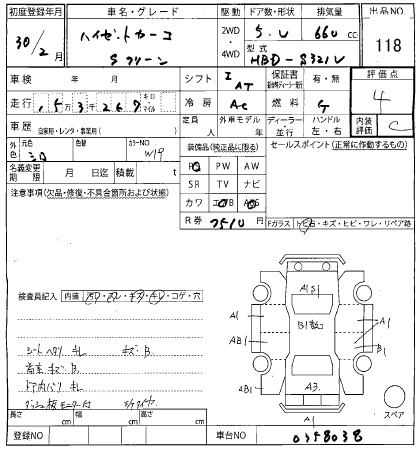 初度登録年月 車名・グレード 駆動 ドア数・形状 排気量 出品NO
30/2月 ハイゼットカーゴ 2WD 5.V 660cc 118
クリーン 4WD 型式 HBD-S321V
車検 年 月 シフト I AT 保証書 有・無 評価点
走行 153267 キロ・マイル 冷房 AC 燃料 G 4
車歴 自家用・レンタ・事業用( ) 定員 人 外車モデル 年 ディーラー・並行 ハンドル 左・右 内装評価 C
外色 元色 シロ 色替 カラーNO W19 装備品(純正品に限る) セールスポイント(正常に作動するもの)
名義変更期限 月 日迄 積載 t PS PW AW
注意事項(欠品・修復・不具合箇所および状態) SR TV ナビ
カワ エアB ABS
R券 7510 Fガラス トビ石・キズ・ヒビ・ワレ・リペア跡
検査員記入 内装 ヨゴレ・スレ・キズ・キレ・コゲ・穴
シートヘタリ キレ キズ・B
荷室 キズ・B
ドア内バリ キレ
ダッシュ板 モニター付
A1 S1
A1
AB1
AB1
B1数コ
A1
B1
A3.
A1
スペア
長さ cm 幅 cm 高さ cm
登録NO 車台NO 0358038